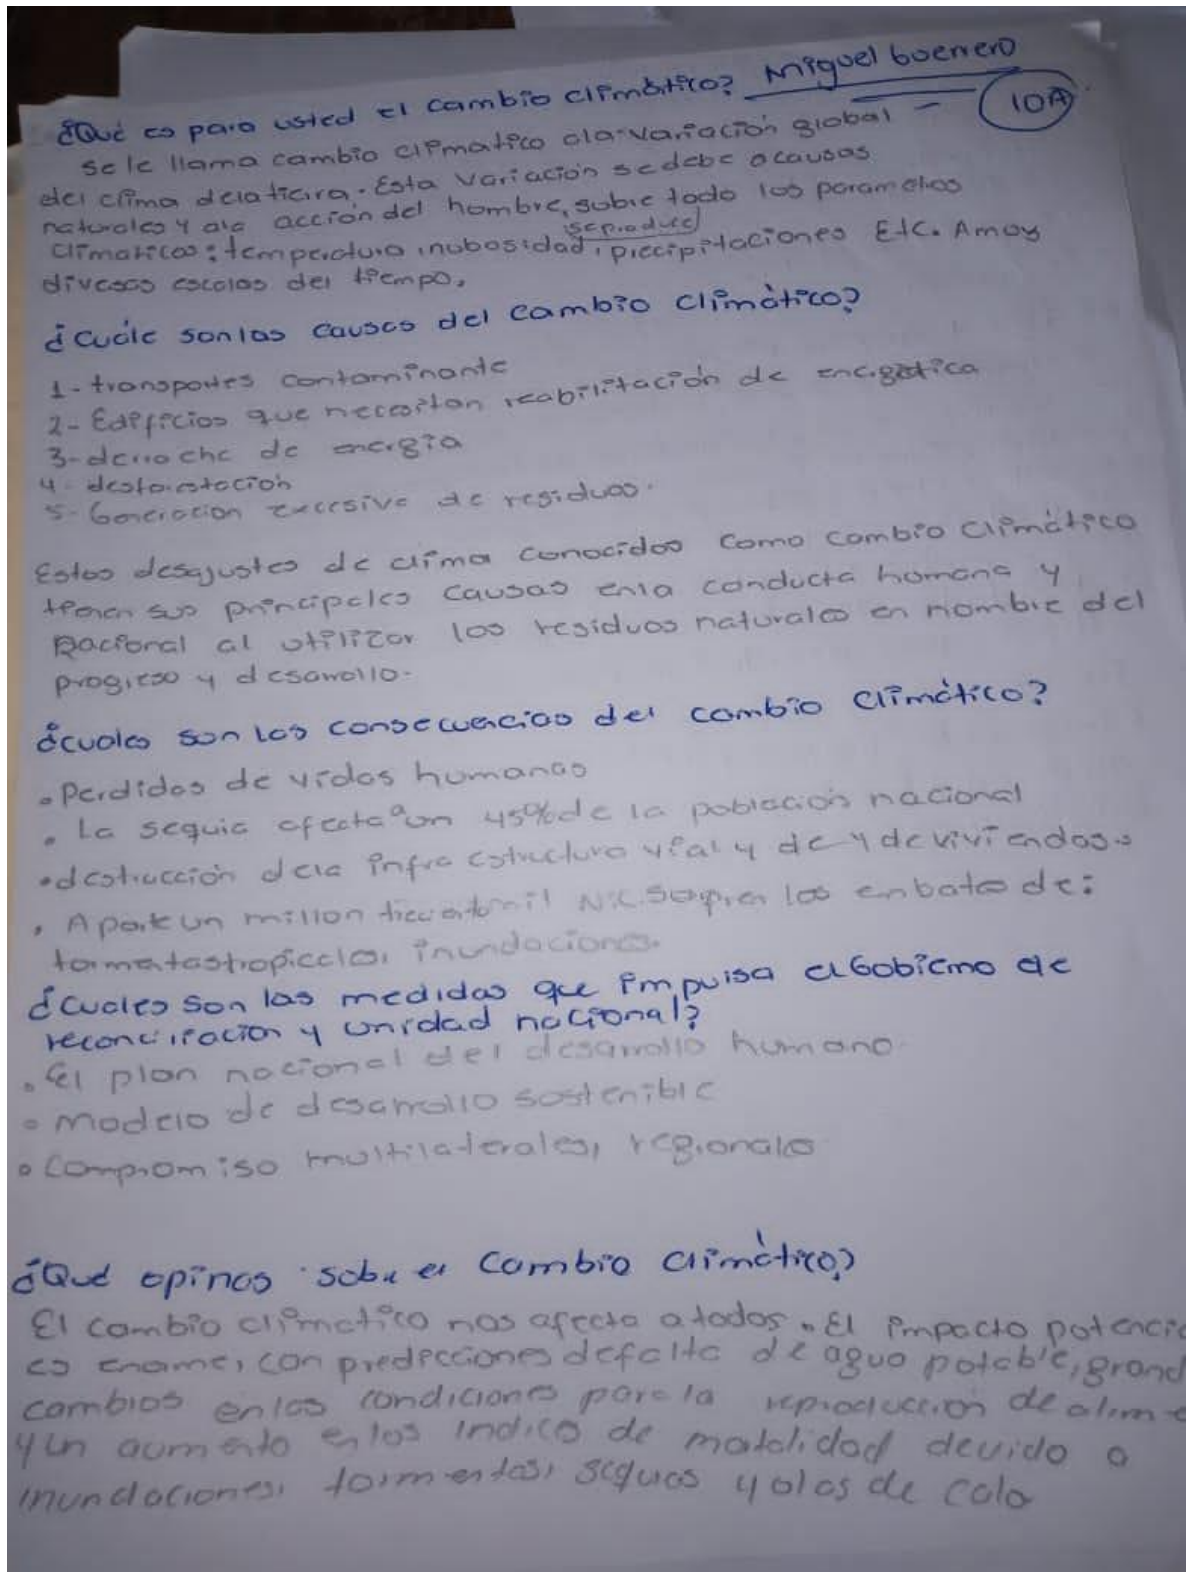 ¿Qué es para usted el cambio climático? Miguel buenrero
10A
se le llama cambio climatico ala variación global
del clima delaticira. Esta variación se debe a causas
naturales y ala acción del hombre, subre todo los parametros
se produce
climaticos: temperatura, nubosidad, precipitaciones Etc. Amoy
divesas escalas del tiempo,
¿cuále son las causas del cambio climático?
1- transportes contaminante
2- Edificios que necesitan reabilitación de energetica
3- derroche de energia
4- desforestacion
5- Generacion excesive de residuos.
Estos desajustes de clima conocidos como cambio climático
tienen sus principales causas enla conducta homana y
Racional al utilizar los residuos naturales en nombre del
progreso y desarrollo.
¿cuales son las consecuencias del cambio climático?
• Perdidas de vidas humanas
• La sequia afecta a un 45% de la poblacion nacional
• destrucción dela infra estructura vial y de y de viviendas.
• Aparte un millon mil Nic. los enbates de:
tormentas tropicales, inundaciones.
¿cuales son las medidas que impulsa el Gobierno de
reconciliacion y unidad nacional?
• El plan nacional del desarrollo humano.
• modelo de desarrollo sostenible
• compromiso multilaterales, regionales
¿Qué opinas sobre el cambio climático?
El cambio climatico nos afecta a todos. El impacto potencia
es enorme, con predicciones de falta de agua potable, grand
cambios en las condiciones para la reproduccion de alime
y un aumento en los indices de matalidad devido a
inundaciones, tormentas, sequias y olas de calo